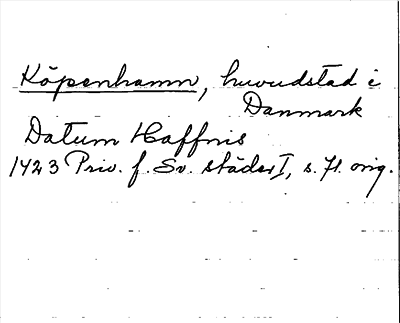 Köpenhamn, huvudstad i
Danmark
Datum Haffnis
1423 Priv. f. Sv. städer I, s. 71. orig.